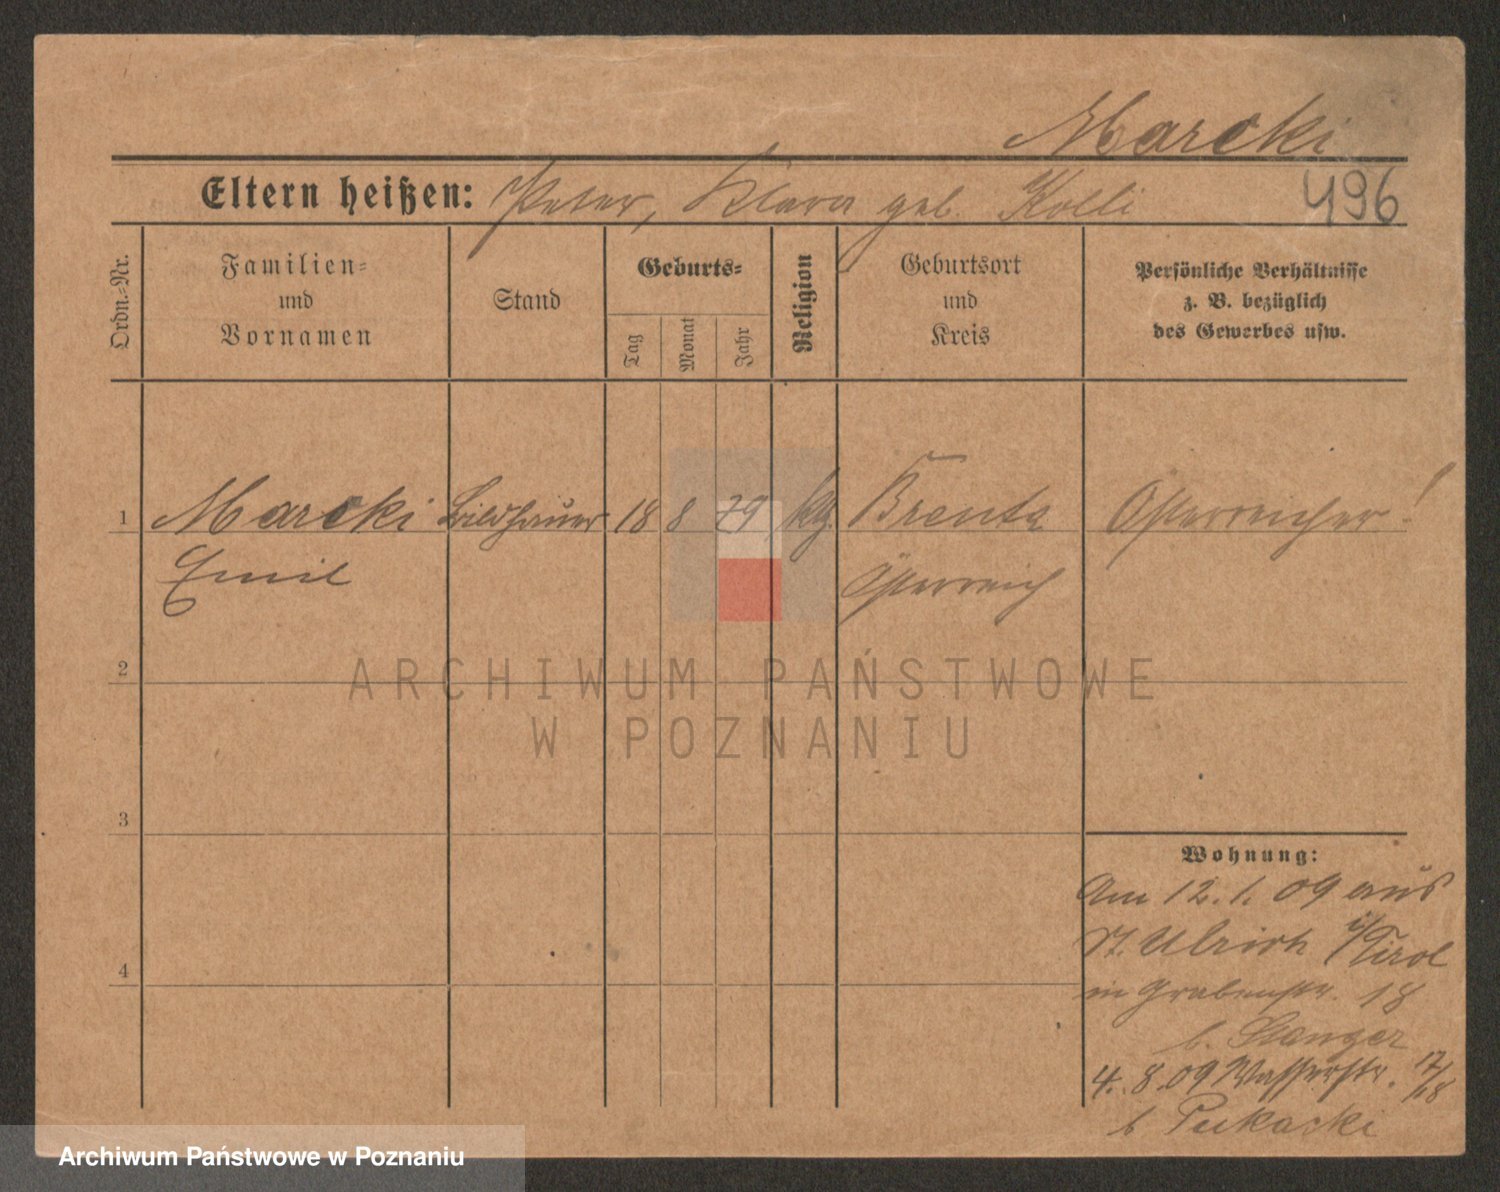 Marcki
Eltern heißen: Peter, Klara geb. Kolli
496
Ordn.-Nr.
Familien-
und
Vornamen
Stand
Geburts-
Tag
Monat
Jahr
Religion
Geburtsort
und
Kreis
Persönliche Verhältnisse
z. B. bezüglich
des Gewerbes usw.
1 Marcki Bildhauer 18 8 79 kth. Brenta Österreicher!
Emil Österreich
2
3
4
Wohnung:
Am 12. 1. 09 aus
St. Ulrich i/Tirol
in Grabenstr. 18
b. Stanger
4. 8. 09 Wasserstr. 17/18
b Pukacki
ARCHIWUM PAŃSTWOWE
W POZNANIU
Archiwum Państwowe w Poznaniu